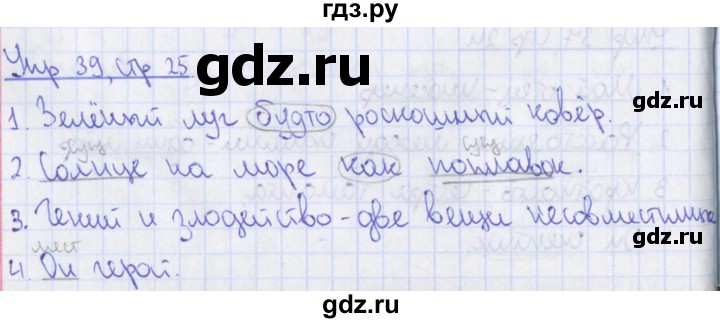 гдз.ру
Упр 39, стр 25
gdz.ru gdz.ru
1. Зелёный луг будто роскошный ковёр.
сущ сущ
2. Солнце на море как поплавок.
3. Гений и злодейство - две вещи несовместимые
мест
4. Он герой.
gdz.ru gdz.ru